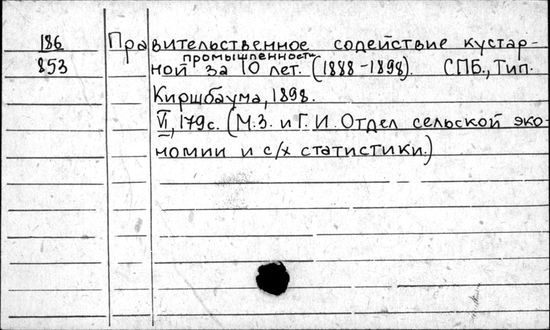 186
853
Правительственное содействие кустар-
промышленности
ной за 10 лет. (1888-1898). СПБ., Тип.
Киршбаума, 1898.
VI, 179с. (М.З. и Г.И. Отдел сельской эко-
номии и с/х статистики.)